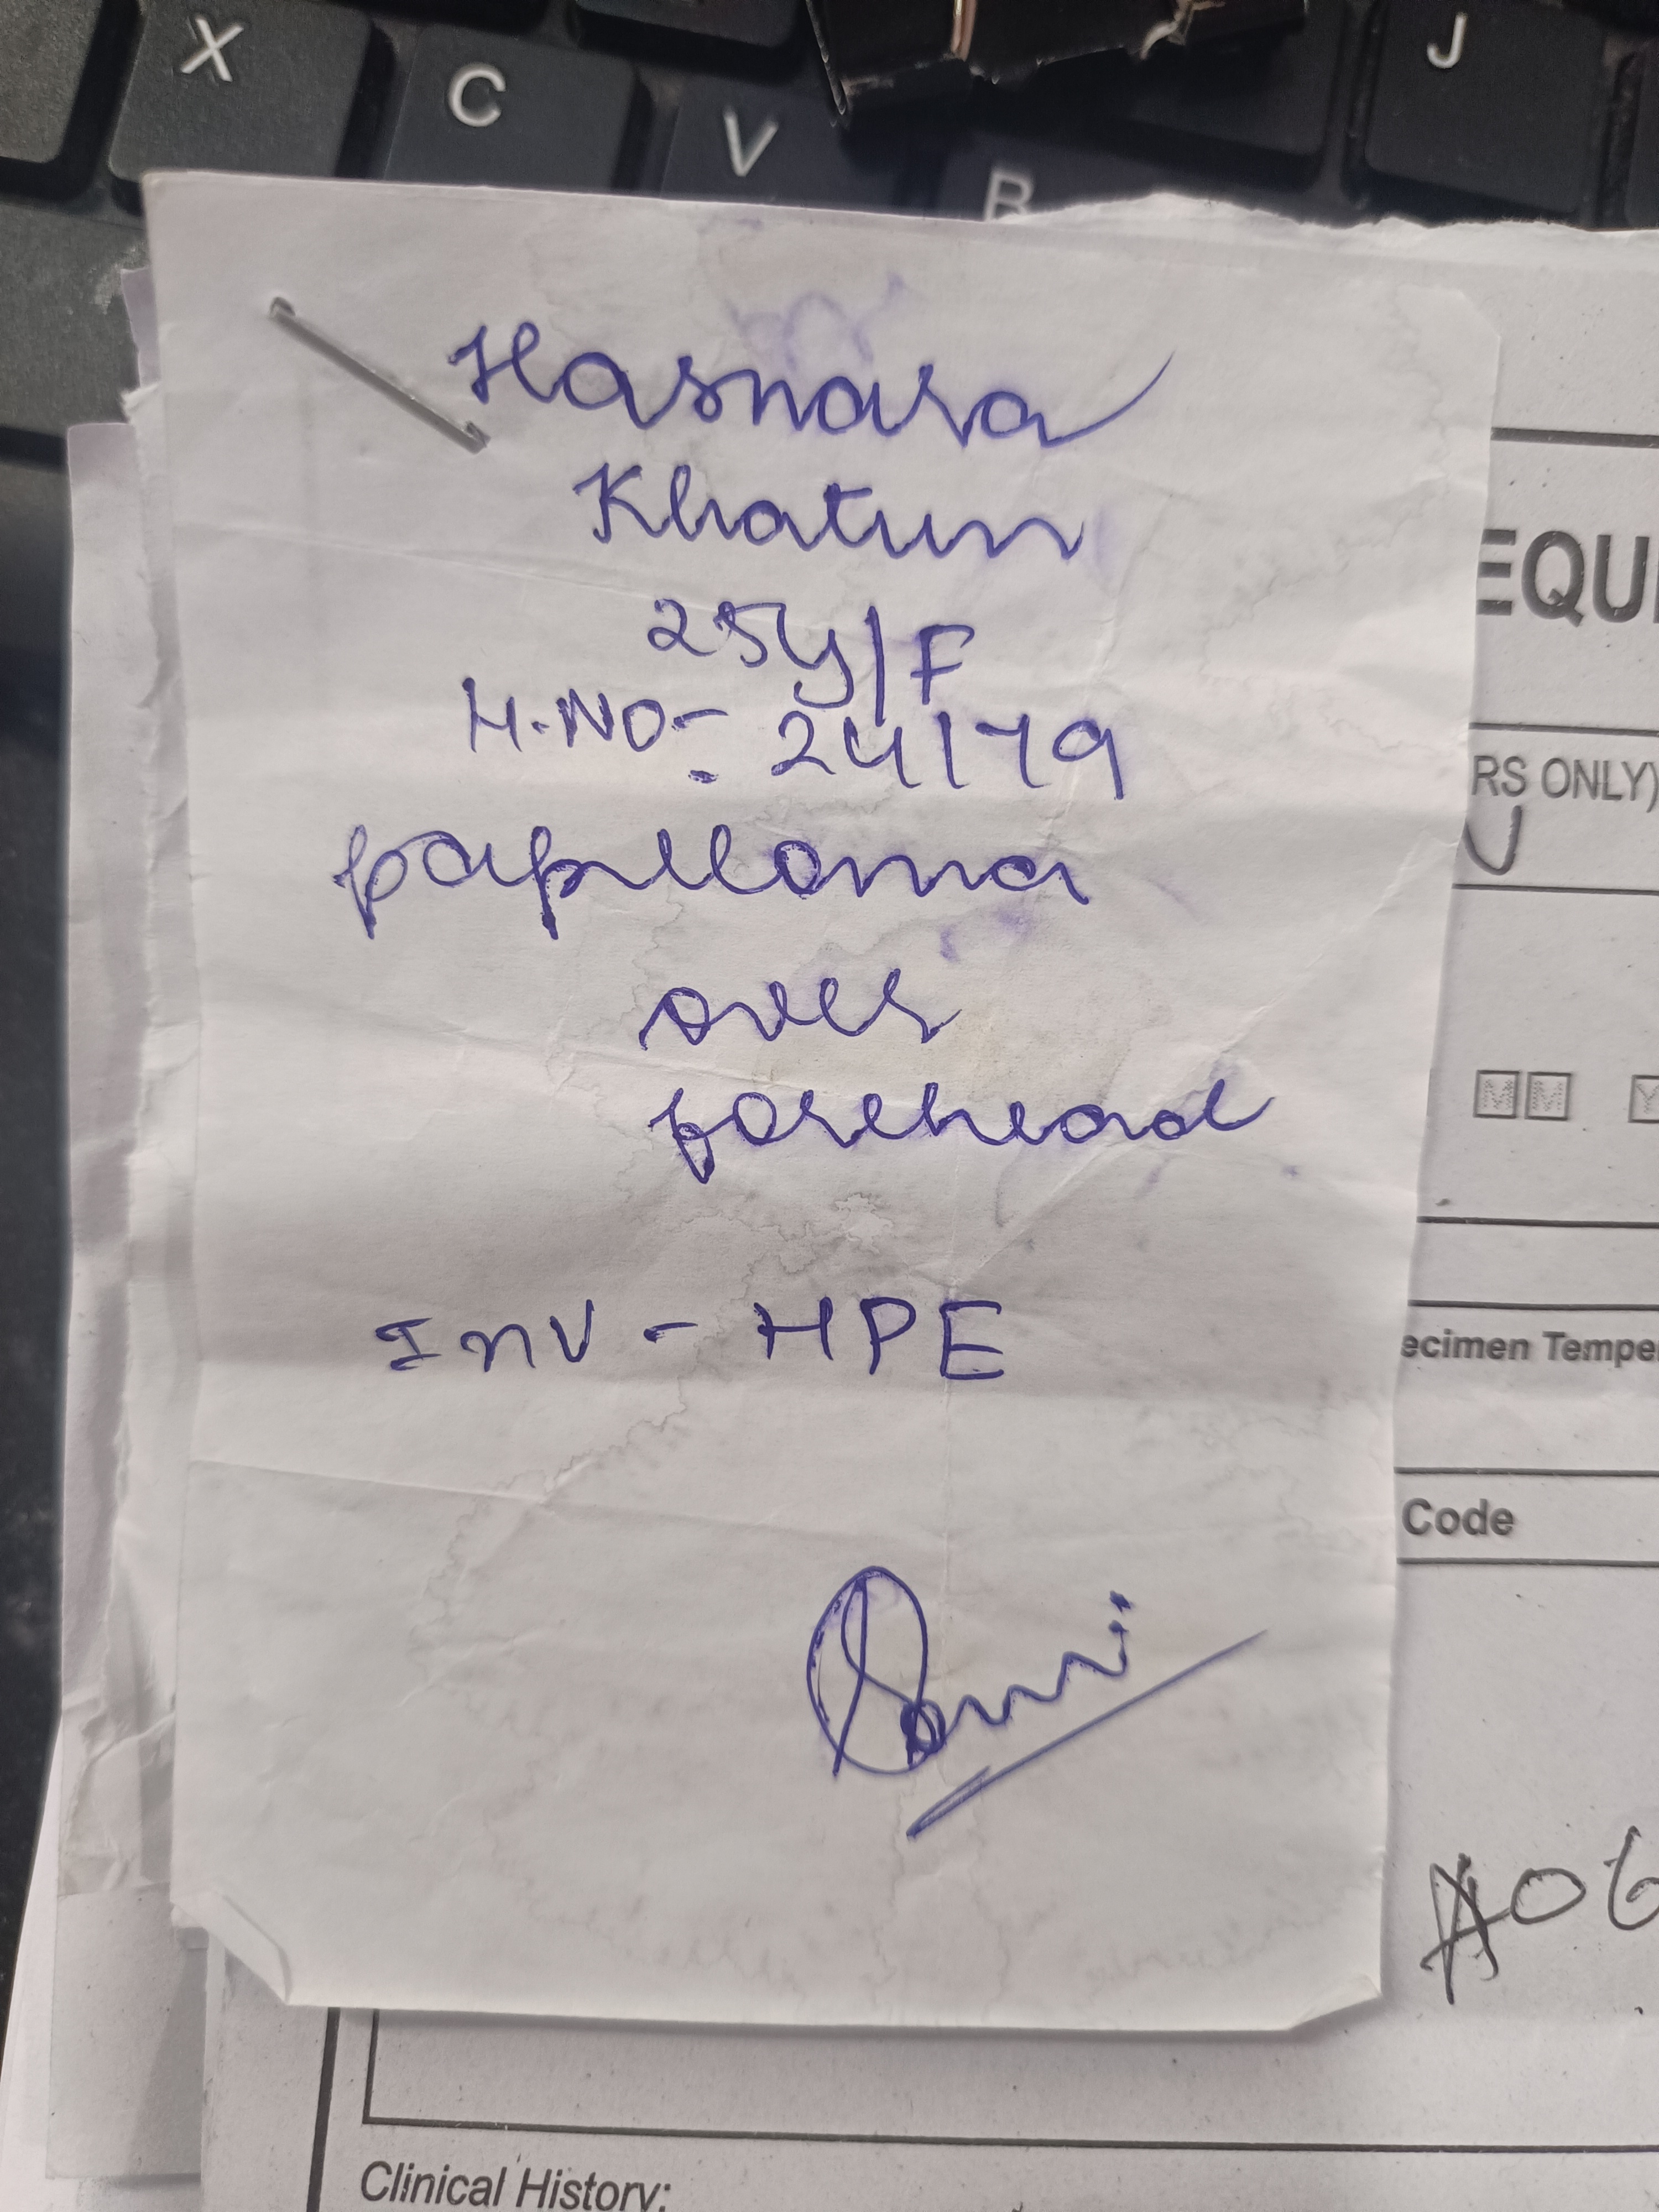 X
C
V
B
J
Hasnara
Khatun
25y/F
H.NO:- 24179
papilloma
over
forehead
Inv - HPE
EQU
RS ONLY)
MM Y
ecimen Tempe
Code
Clinical History: